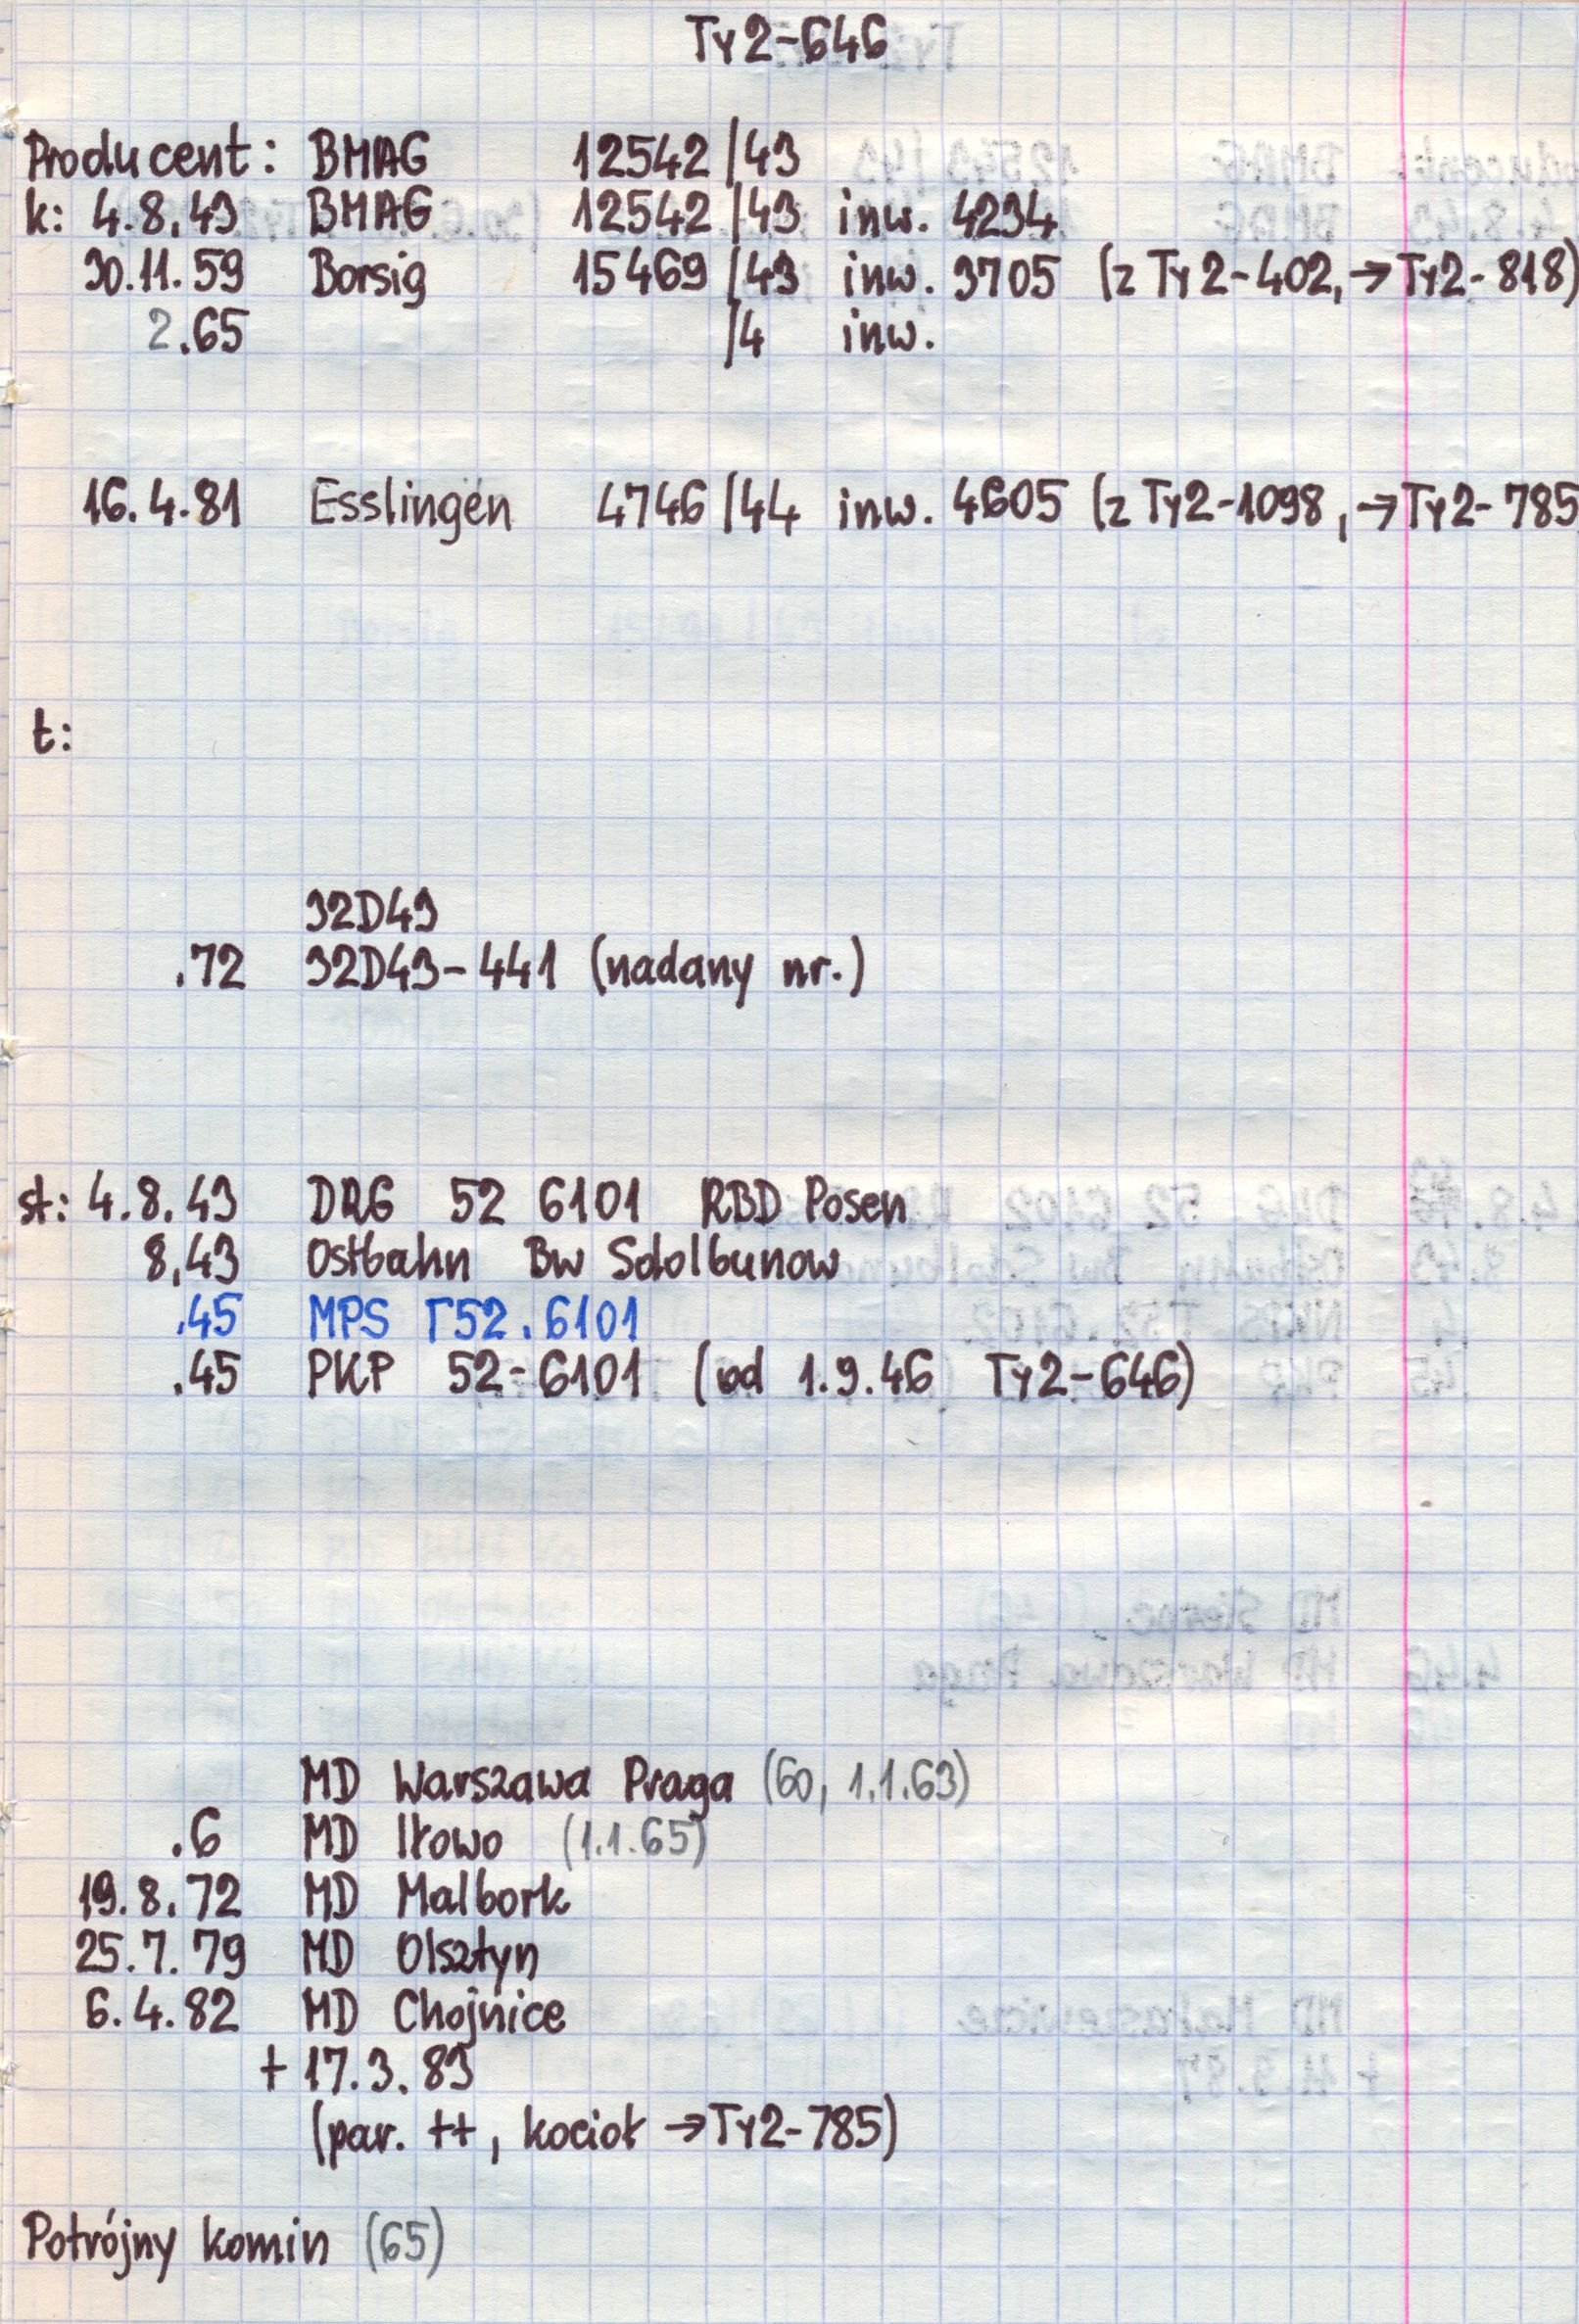 Ty2-646
Producent: BMAG 12542/43
k: 4.8.43 BMAG 12542/43 inw. 4234
30.11.59 Borsig 15469/43 inw. 3705 (z Ty2-402, →Ty2-818)
2.65 /4 inw.
16.4.81 Esslingen 4746/44 inw. 4605 (z Ty2-1098, →Ty2-785
t:
32D43
.72 32D43-441 (nadany nr.)
st: 4.8.43 DRG 52 6101 RBD Posen
8.43 Ostbahn Bw Sdolbunow
.45 MPS T52.6101
.45 PKP 52-6101 (od 1.9.46 Ty2-646)
MD Warszawa Praga (60, 1.1.63)
.6 MD Iłowo (1.1.65)
19.8.72 MD Malbork
25.7.79 MD Olsztyn
6.4.82 MD Chojnice
+ 17.3.83
(par. ++, kocioł →Ty2-785)
Potrójny komin (65)